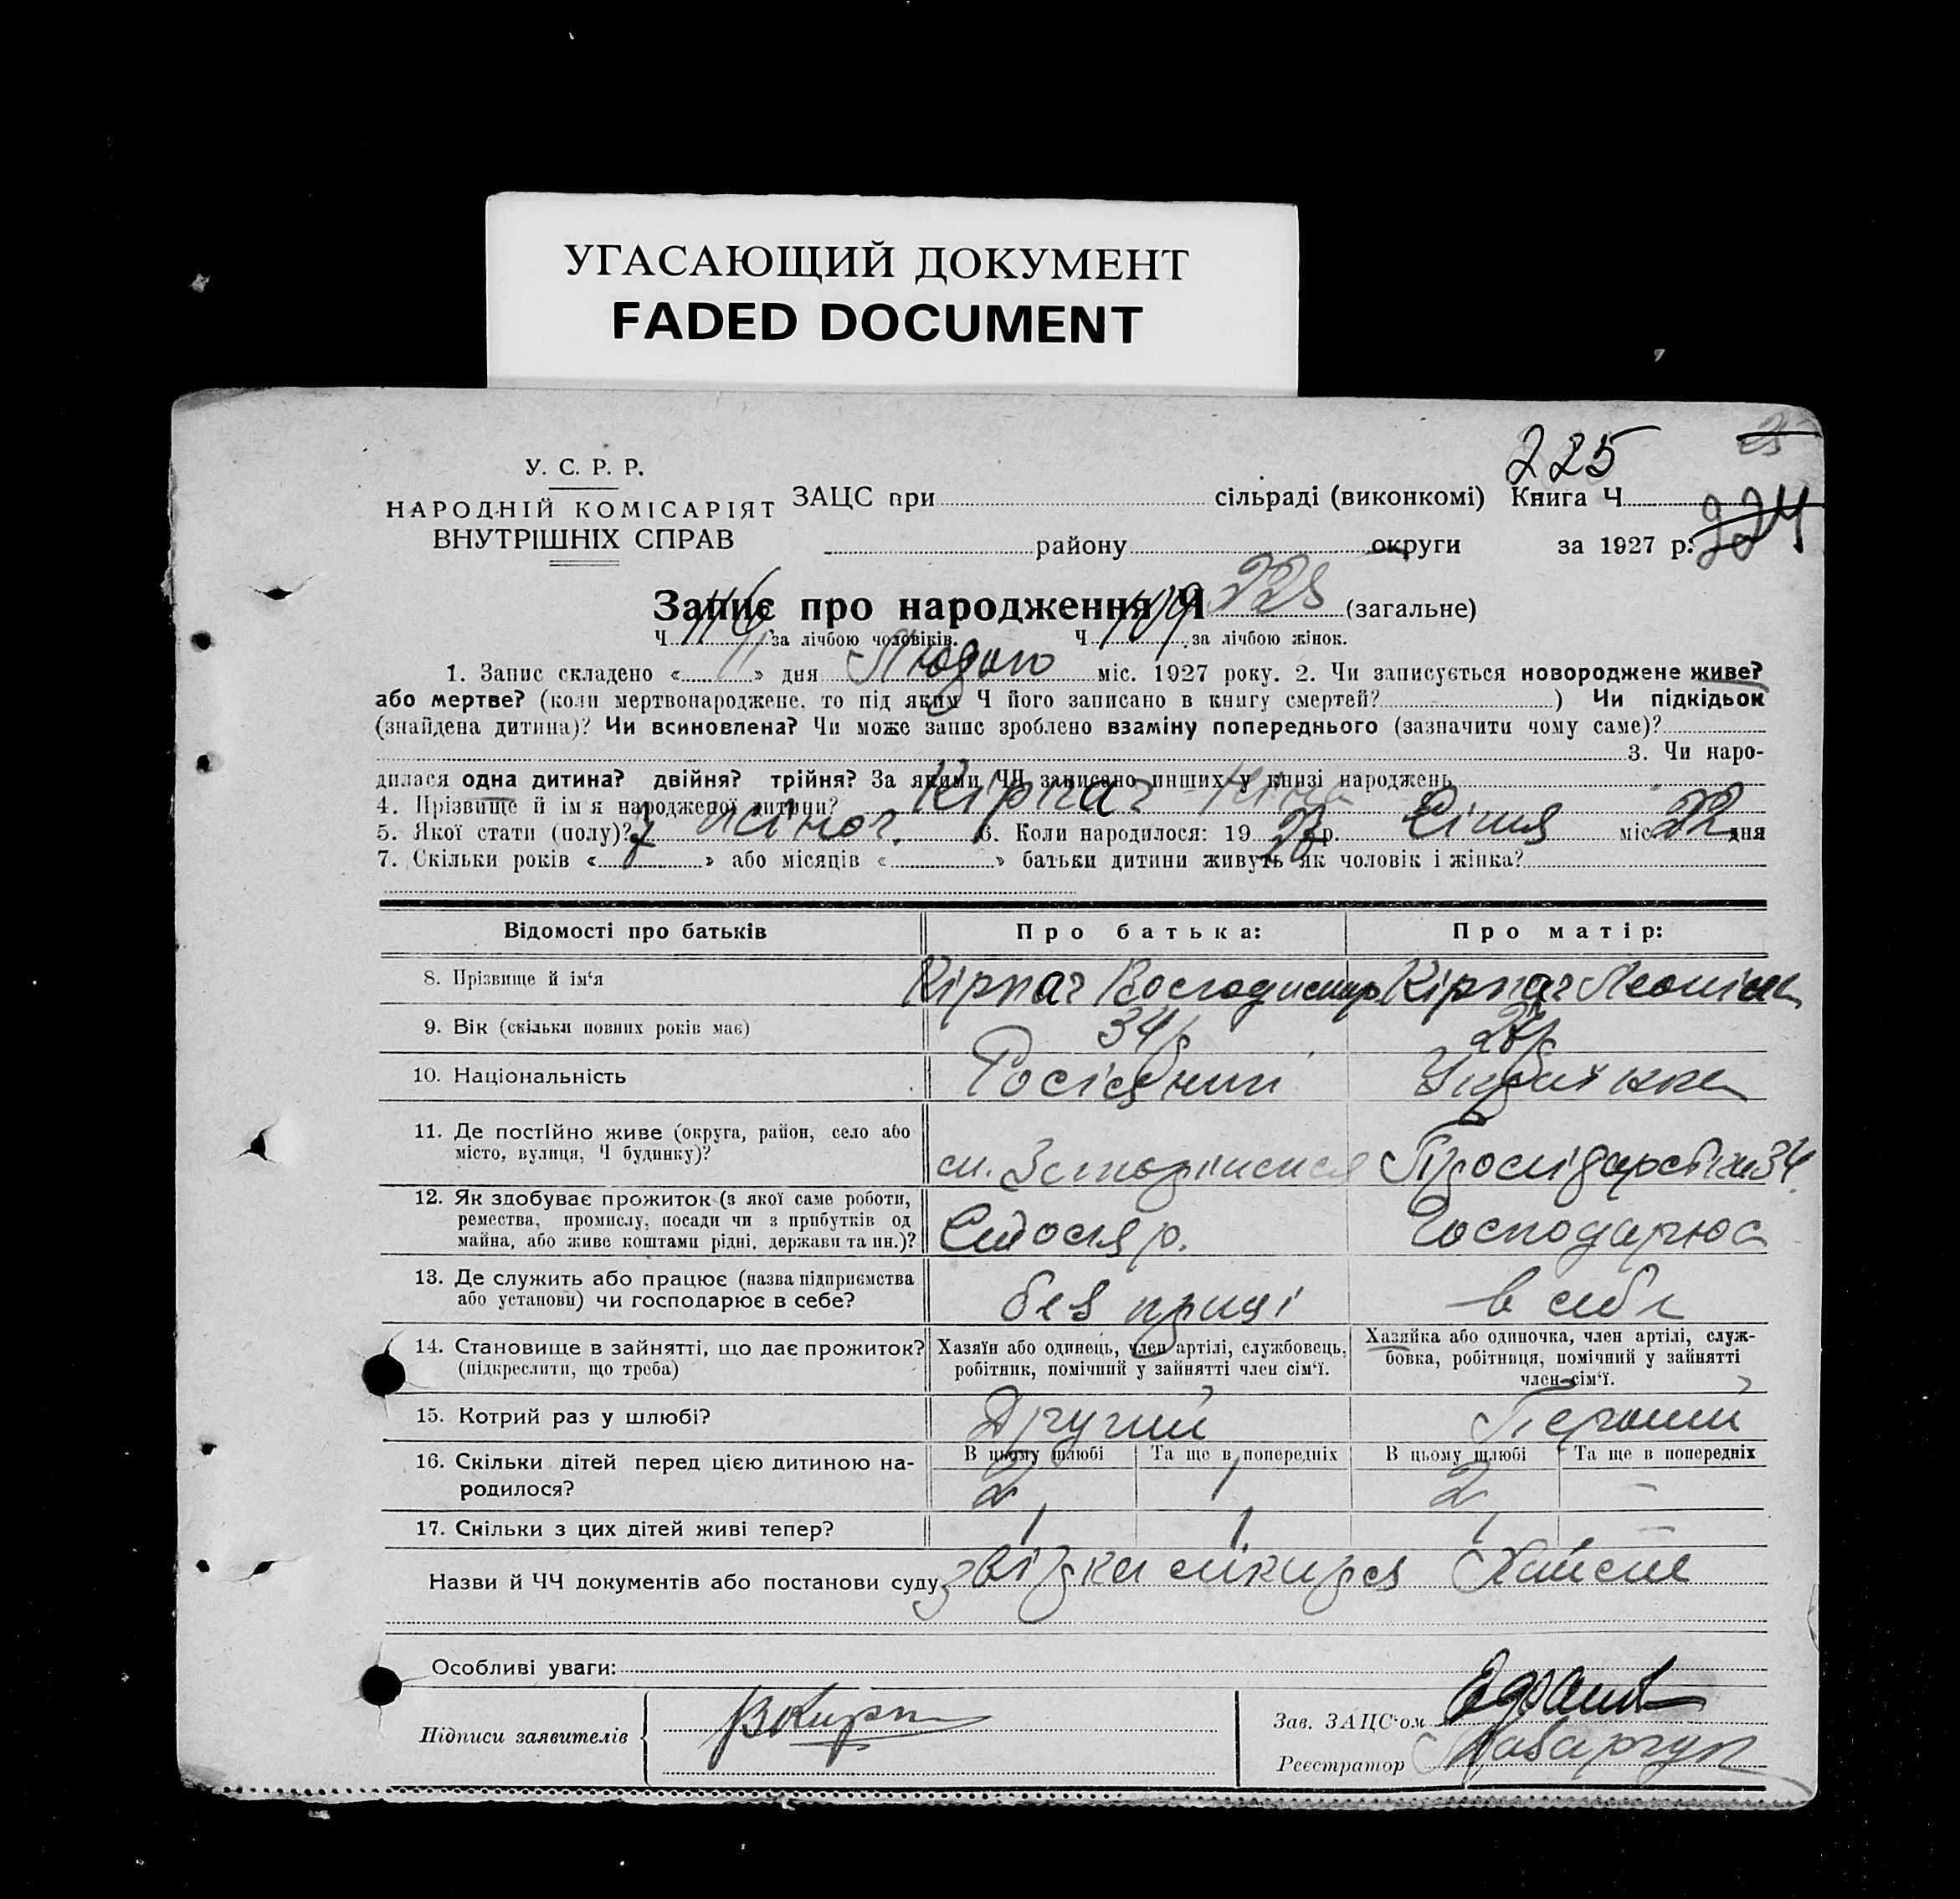 УГАСАЮЩИЙ ДОКУМЕНТ
FADED DOCUMENT
225
У. С. Р. Р.
НАРОДНІЙ КОМІСАРІЯТ
ВНУТРІШНІХ СПРАВ
ЗАЦС при сільраді (виконкомі) Книга Ч
району округи за 1927 р. 224
Запис про народження Ч 225 (загальне)
Ч 116 за лічбою чоловіків. Ч 109 за лічбою жінок.
1. Запис складено « 11 » дня Лютого міс. 1927 року. 2. Чи записується новороджене живе?
або мертве? (коли мертвонароджене, то під яким Ч його записано в книгу смертей? ) Чи підкідьок
(знайдена дитина)? Чи всиновлена? Чи може запис зроблено взаміну попереднього (зазначити чому саме)?
3. Чи наро-
дилася одна дитина? двійня? трійня? За якими ЧЧ записано инших у книзі народжень
4. Прізвище й ім'я народженої дитини? Кірпач Ніна
5. Якої стати (полу)? жіноч. 6. Коли народилося: 19 27 р. Січня міс. 22 дня
7. Скільки років « » або місяців « » батьки дитини живуть як чоловік і жінка?
Відомості про батьків Про батька: Про матір:
8. Прізвище й ім'я Кірпач Володимир Кірпач
9. Вік (скільки повних років має) 34 р
10. Національність Українка
11. Де постійно живе (округа, район, село або
місто, вулиця, Ч будинку)? м. 34
12. Як здобуває прожиток (з якої саме роботи,
ремества, промислу, посади чи з прибутків од
майна, або живе коштами рідні, держави та ин.)? Столяр. Господарює
13. Де служить або працює (назва підприємства
або установи) чи господарює в себе? без праці в себе
14. Становище в зайнятті, що дає прожиток?
(підкреслити, що треба)
Хазяїн або одинець, член артілі, службовець,
робітник, помічний у зайнятті член сім'ї.
Хазяйка або одиночка, член артілі, служ-
бовка, робітниця, помічний у зайнятті
член сім'ї.
15. Котрий раз у шлюбі? Другий Перший
16. Скільки дітей перед цією дитиною на-
родилося?
В цьому шлюбі Та ще в попередніх В цьому шлюбі Та ще в попередніх
2 1 2 -
17. Скільки з цих дітей живі тепер? 1 1 1 -
Назви й ЧЧ документів або постанови суду
Особливі уваги:
Підписи заявителів
Зав. ЗАЦС'ом
Реєстратор